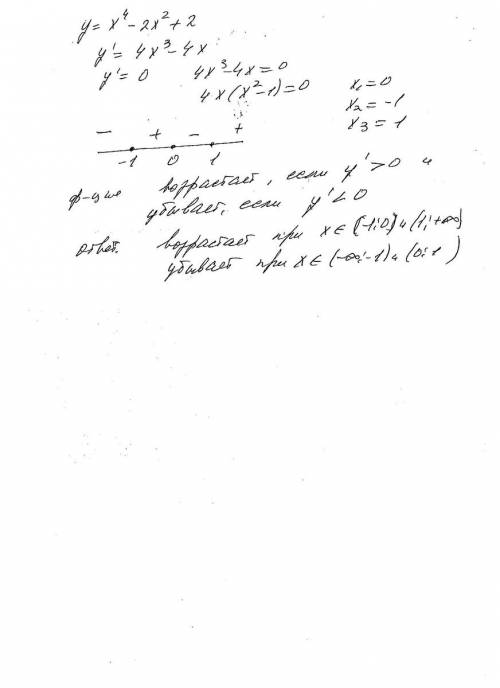 y = x⁴ - 2x² + 2
y' = 4x³ - 4x
y' = 0 4x³ - 4x = 0
4x(x² - 1) = 0
x₁ = 0
x₂ = -1
x₃ = 1
- + - +
-1 0 1
ф-ция возрастает, если y' > 0 и
убывает, если y' < 0
ответ. возрастает при x ∈ (-1; 0) и (1; +∞)
убывает при x ∈ (-∞; -1) и (0; 1)